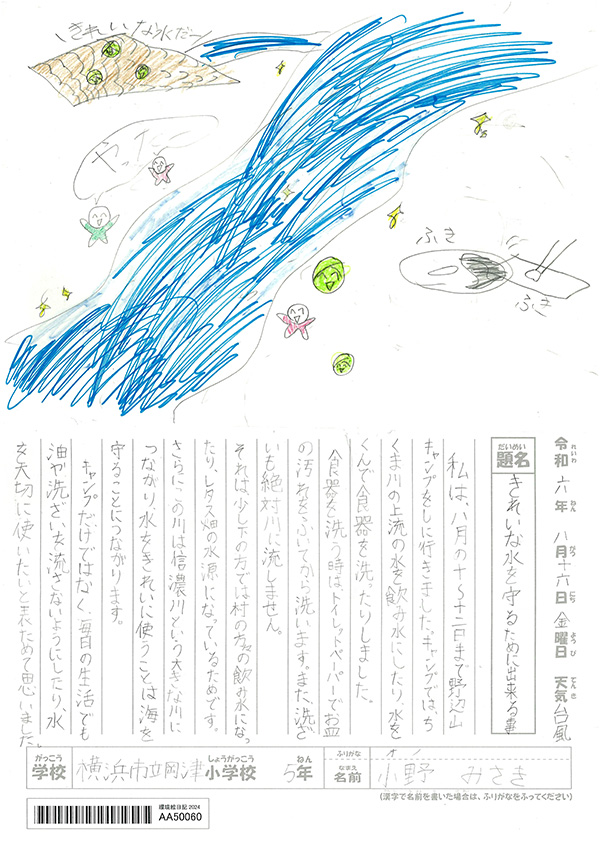 きれいな水だー
やったー
ふき
ふき
令和六年八月十六日金曜日 天気台風
れいわ ねん がつ にち ようび てんき
だいめい
題名
きれいな水を守るために出来る事
私は、八月の十～十二日まで野辺山
キャンプをしに行きました。キャンプでは、ち
くま川の上流の水を飲み水にしたり、水を
くんで食器を洗ったりしました。
食器を洗う時はトイレットペーパーでお皿
の汚れをふいてから洗います。また、洗ざ
いも絶対川に流しません。
それは、少し下の方では村の方々の飲み水になっ
たり、レタス畑の水源になっているためです。
さらにこの川は信濃川という大きな川に
つながり、水をきれいに使うことは海を
守ることにつながります。
キャンプだけではなく、毎日の生活でも
油や洗ざいを流さないようにしたり、水
を大切に使いたいと表ためて思いました。
がっこう
学校
横浜市立岡津
しょうがっこう
小学校
5
ねん
年
ふりがな
なまえ
名前
小野 みさき
(漢字で名前を書いた場合は、ふりがなをふってください)
環境絵日記 2024
AA50060